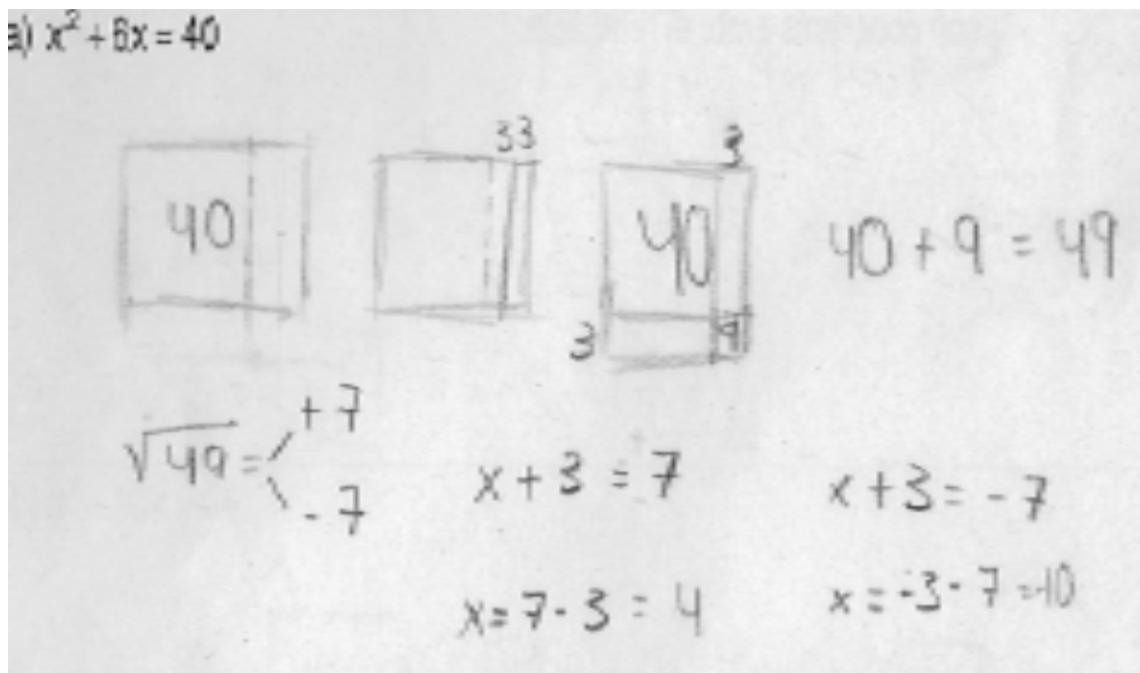 a) x² + 6x = 40
33
3
40
40
40 + 9 = 49
3
9
√49 =
+ 7
- 7
x + 3 = 7
x + 3 = - 7
x = 7 - 3 = 4
x = -3 - 7 = -10